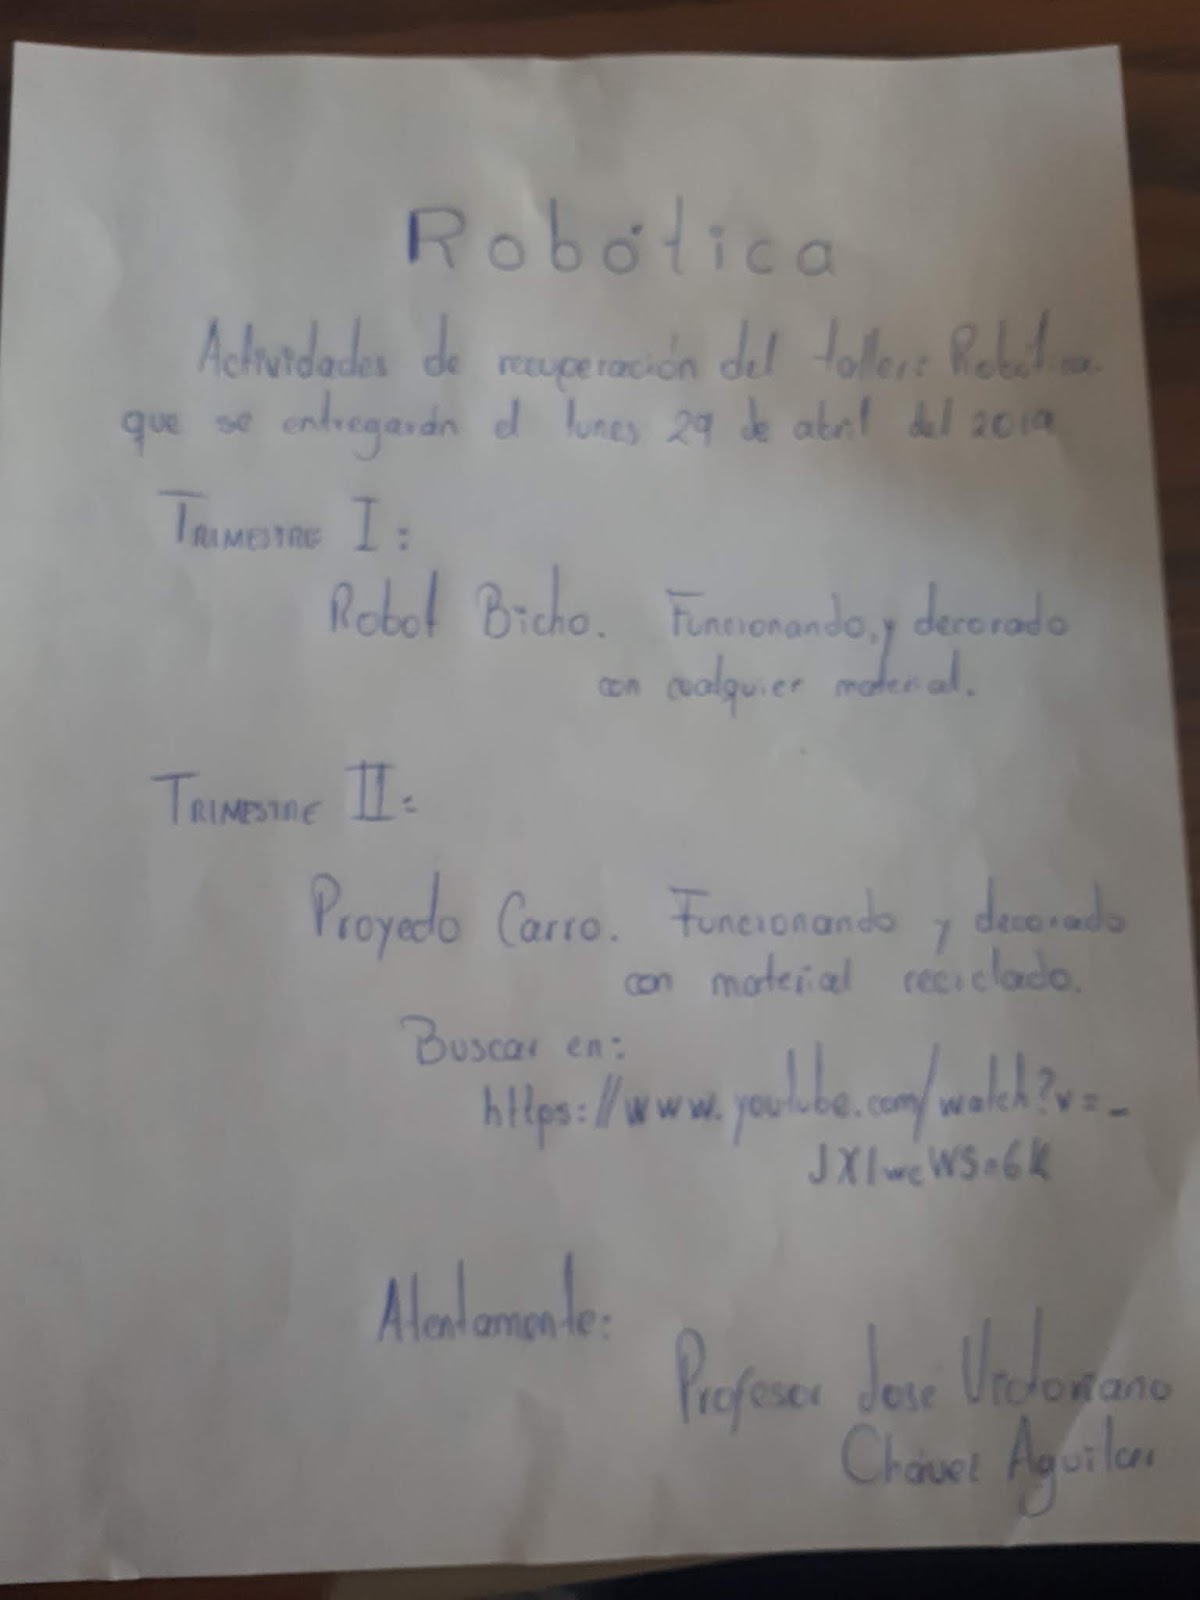 Robótica
Actividades de recuperación del taller: Robótica
que se entregarán el lunes 29 de abril del 2019
TRIMESTRE I:
Robot Bicho. Funcionando, y decorado
con cualquier material.
TRIMESTRE II:
Proyecto Carro. Funcionando y decorado
con material reciclado.
Buscar en:
https://www.youtube.com/watch?v=_
Atentamente:
Profesor José Victoriano
Chávez Aguilar